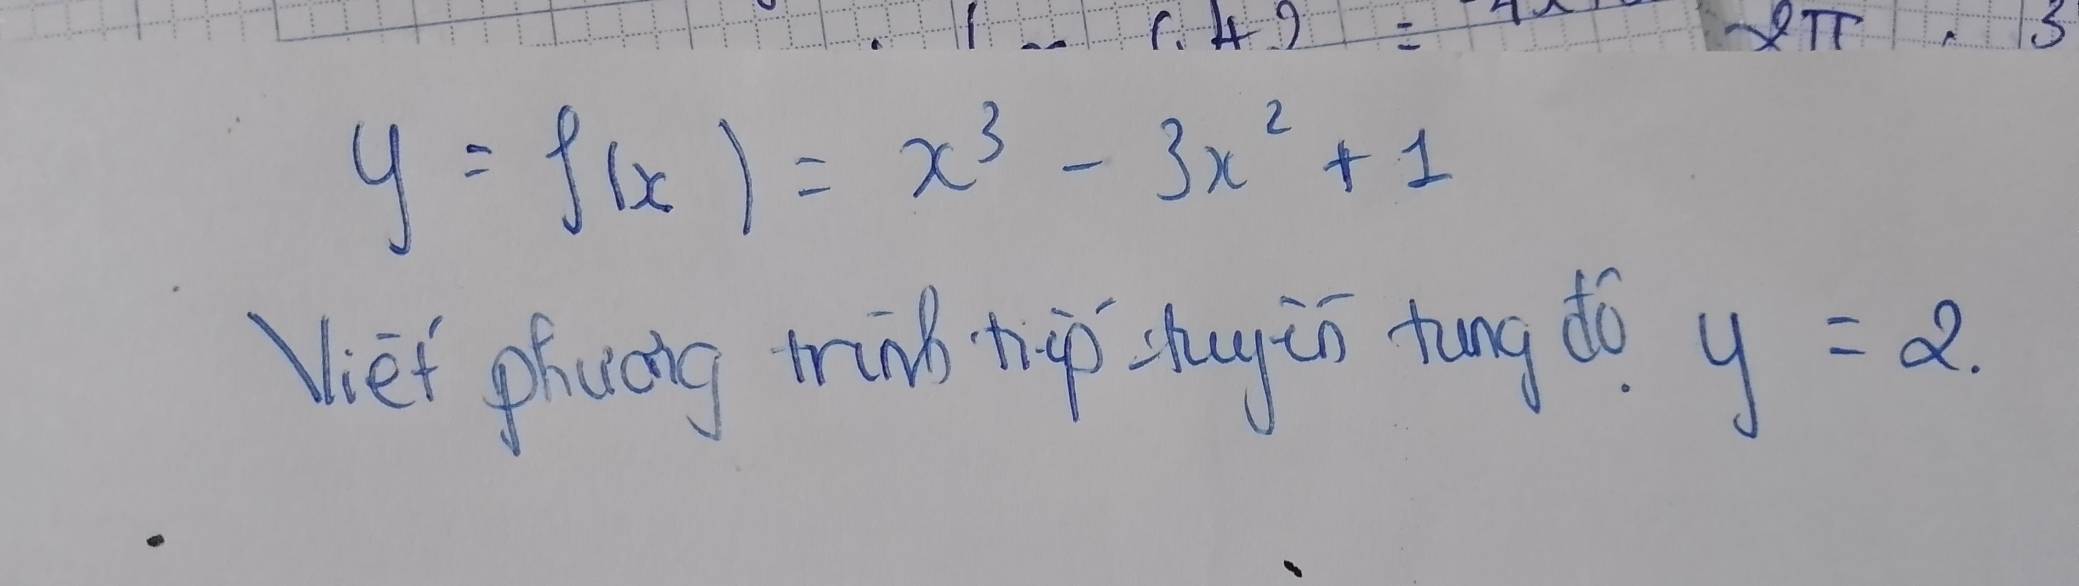 y = f(x) = x³ - 3x² + 1
Viết phương trình tiếp tuyến tung độ y = 2.